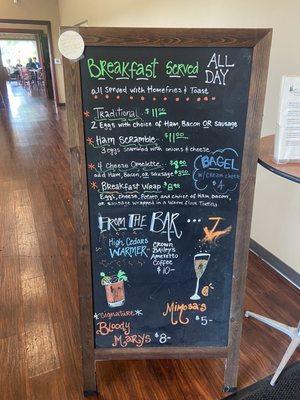 Breakfast Served ALL DAY
all served with Homefries & Toast
Traditional $11.00
2 Eggs with choice of Ham, Bacon or Sausage
Ham Scramble $11.00
3 eggs scrambled with onions & cheese
4 Cheese Omelette
add Ham, Bacon or Sausage
Breakfast Wrap
Eggs, Cheese, Potato and choice of Ham, Bacon
or sausage wrapped in a Warm Flour Tortilla
BAGEL
w/ cream cheese
$4
From the Bar...
High Cedars
Warmer
Crown
Baileys
Amaretto
Coffee
$10-
*Signature*
Bloody
Marys $8-
Mimosas
$5-